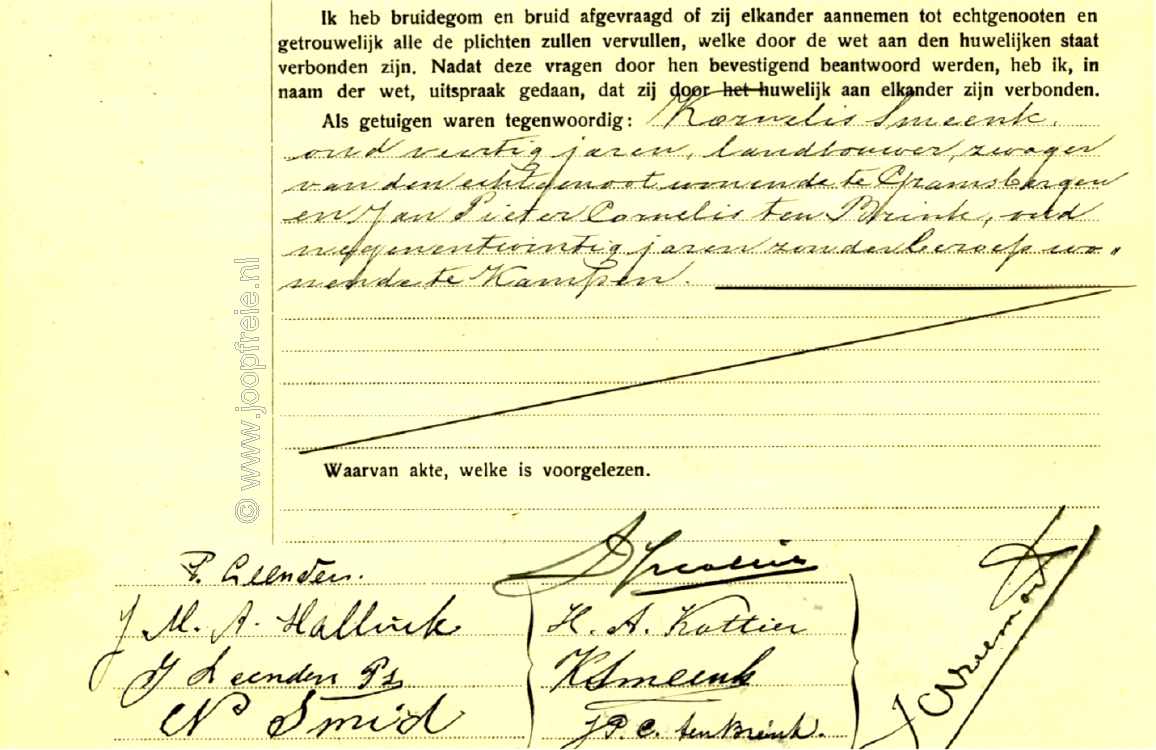 Ik heb bruidegom en bruid afgevraagd of zij elkander aannemen tot echtgenooten en
getrouwelijk alle de plichten zullen vervullen, welke door de wet aan den huwelijken staat
verbonden zijn. Nadat deze vragen door hen bevestigend beantwoord werden, heb ik, in
naam der wet, uitspraak gedaan, dat zij door het huwelijk aan elkander zijn verbonden.
Als getuigen waren tegenwoordig: Kornelis Smeenk,
oud veertig jaren, landbouwer, zwager
van den echtgenoot wonende te Gramsbergen
en Jan Pieter Cornelis ten Brink, oud
negenentwintig jaren zonder beroep wo„
nende te Kampen.
Waarvan akte, welke is voorgelezen.
P. Leenders.
J M. A. Hallück H. A. Kottier
J Leenders Pz KSmeenk
N Smid J P. C. ten Brink.
© www.joopfreie.nl